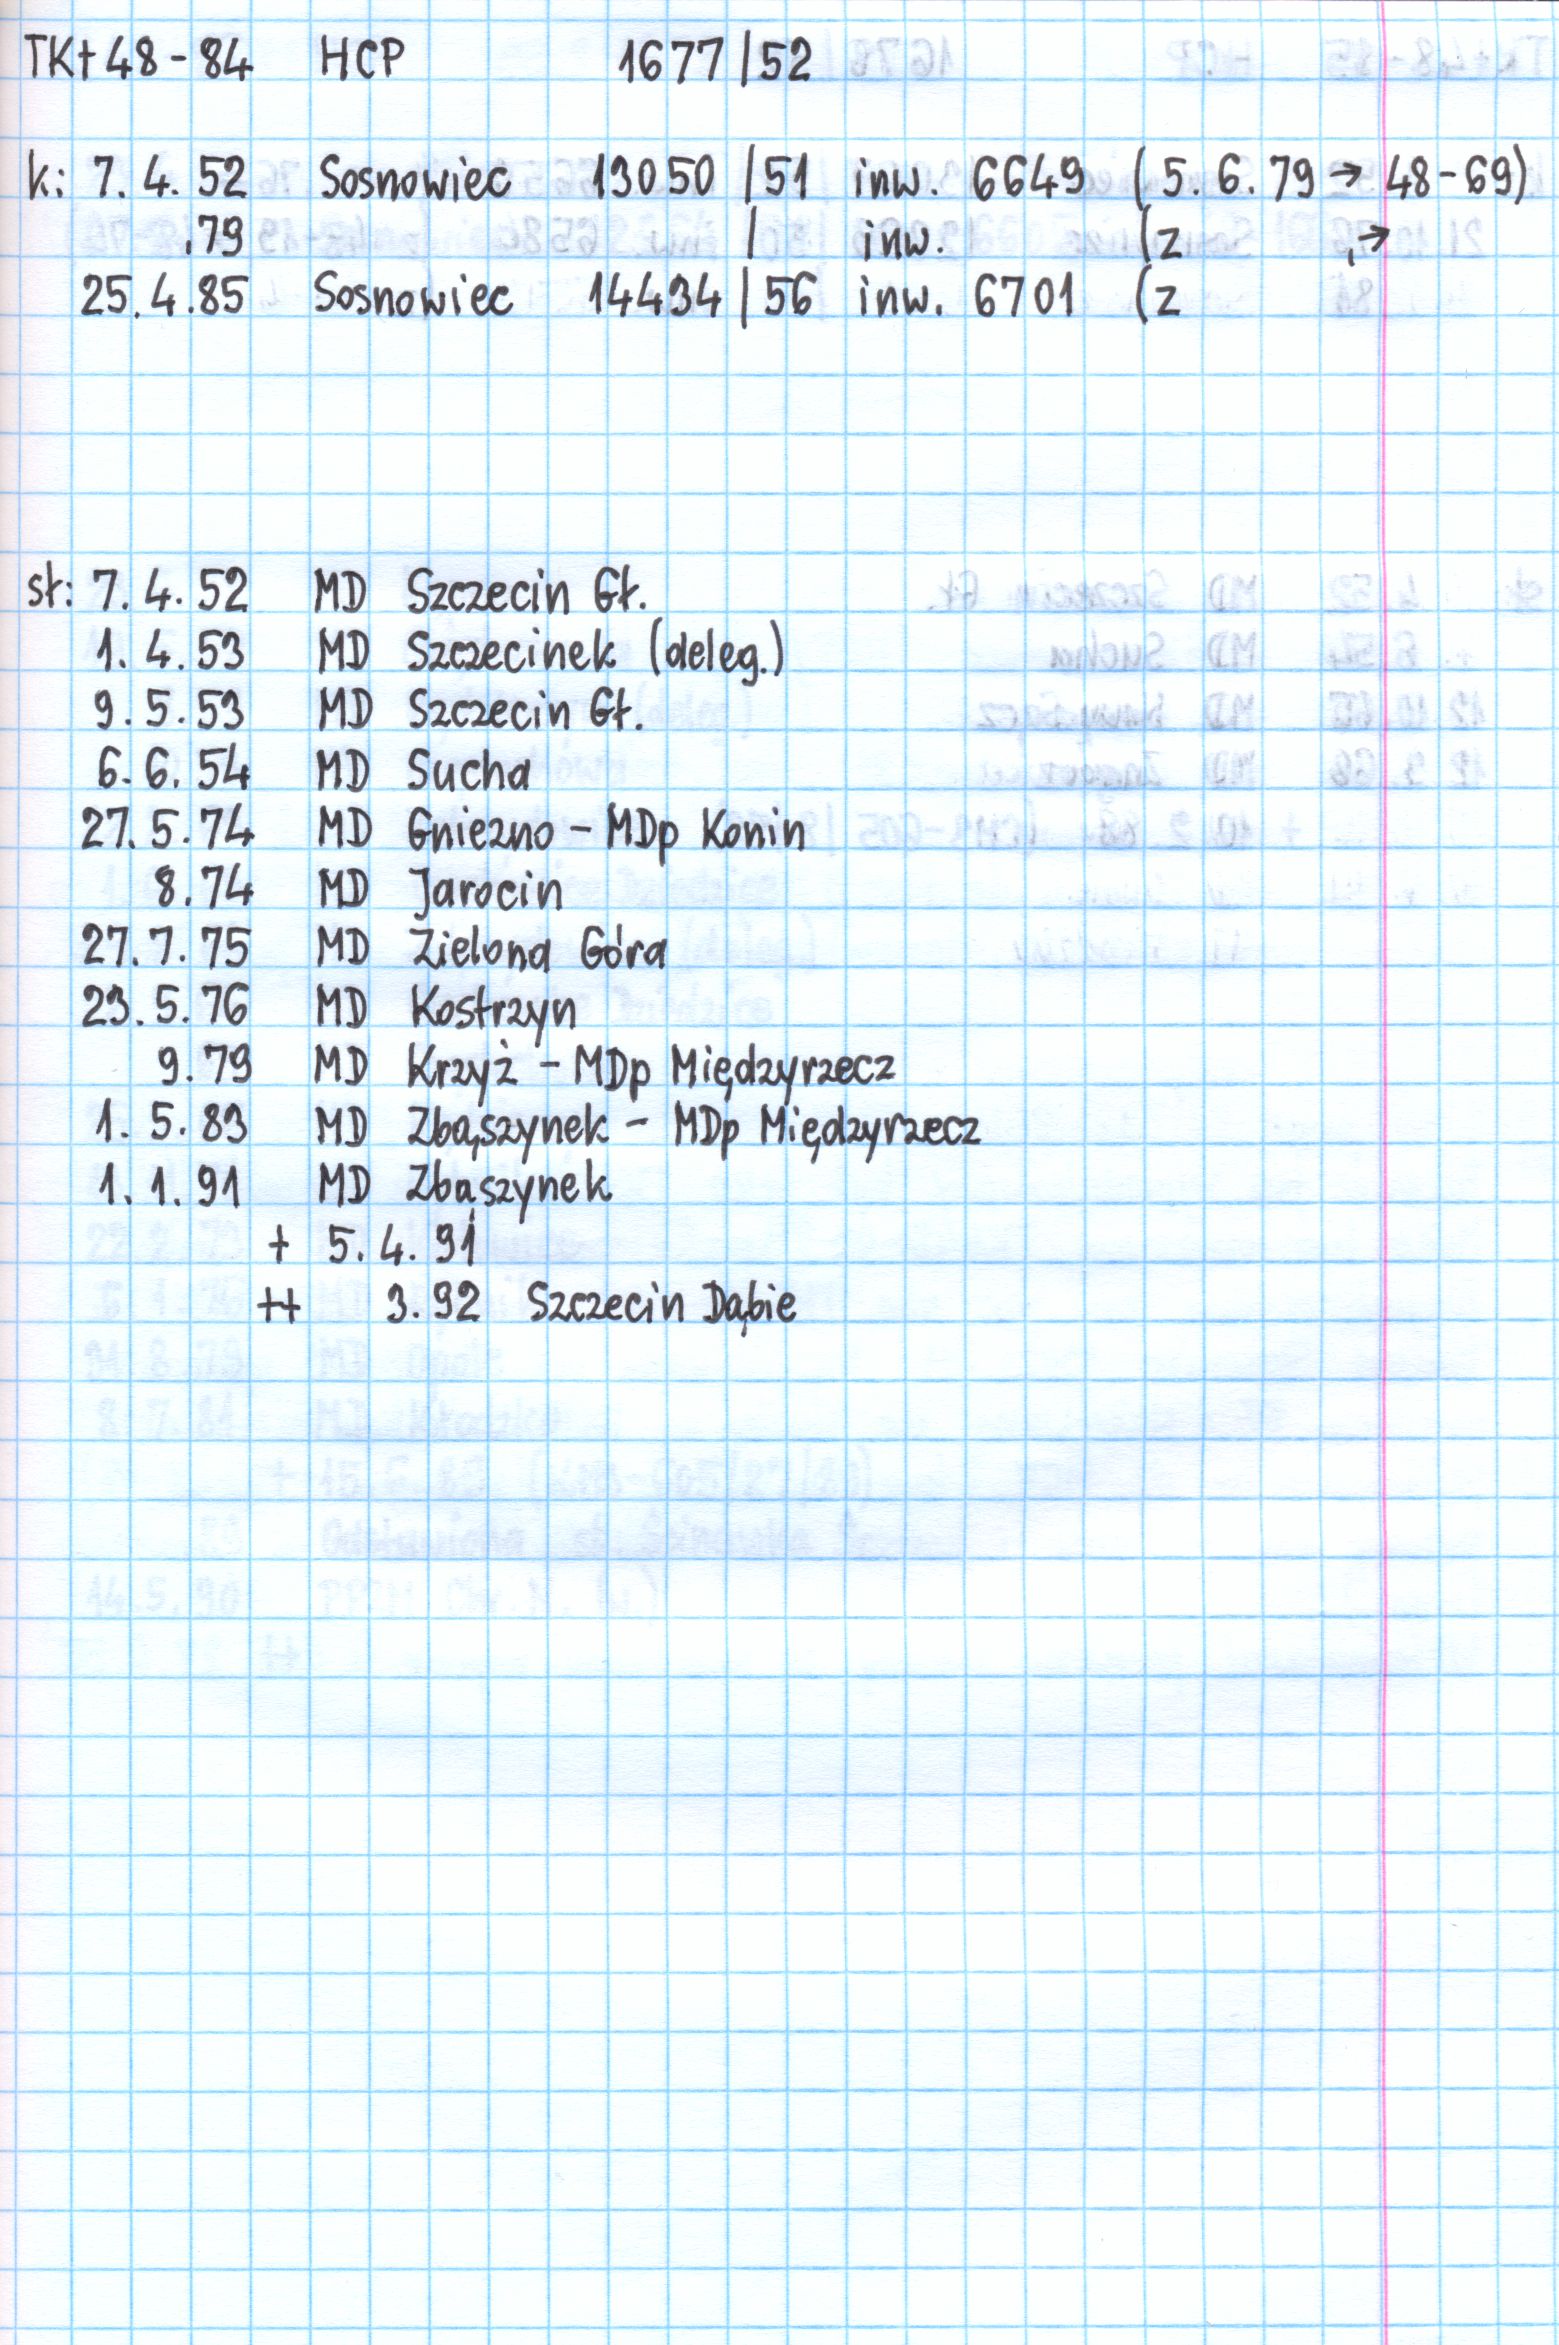 TKt 48-84 HCP 1677/52
k: 7.4.52 Sosnowiec 13050/51 inw. 6649 (5.6.79 → 48-69)
.79 / inw. (z , →
25.4.85 Sosnowiec 14434/56 inw. 6701 (z
sł: 7.4.52 MD Szczecin Gł.
1.4.53 MD Szczecinek (deleg.)
9.5.53 MD Szczecin Gł.
6.6.54 MD Sucha
27.5.74 MD Gniezno - MDp Konin
8.74 MD Jarocin
27.7.75 MD Zielona Góra
23.5.76 MD Kostrzyn
9.79 MD Krzyż - MDp Międzyrzecz
1.5.83 MD Zbąszynek - MDp Międzyrzecz
1.1.91 MD Zbąszynek
+ 5.4.91
++ 3.92 Szczecin Dąbie